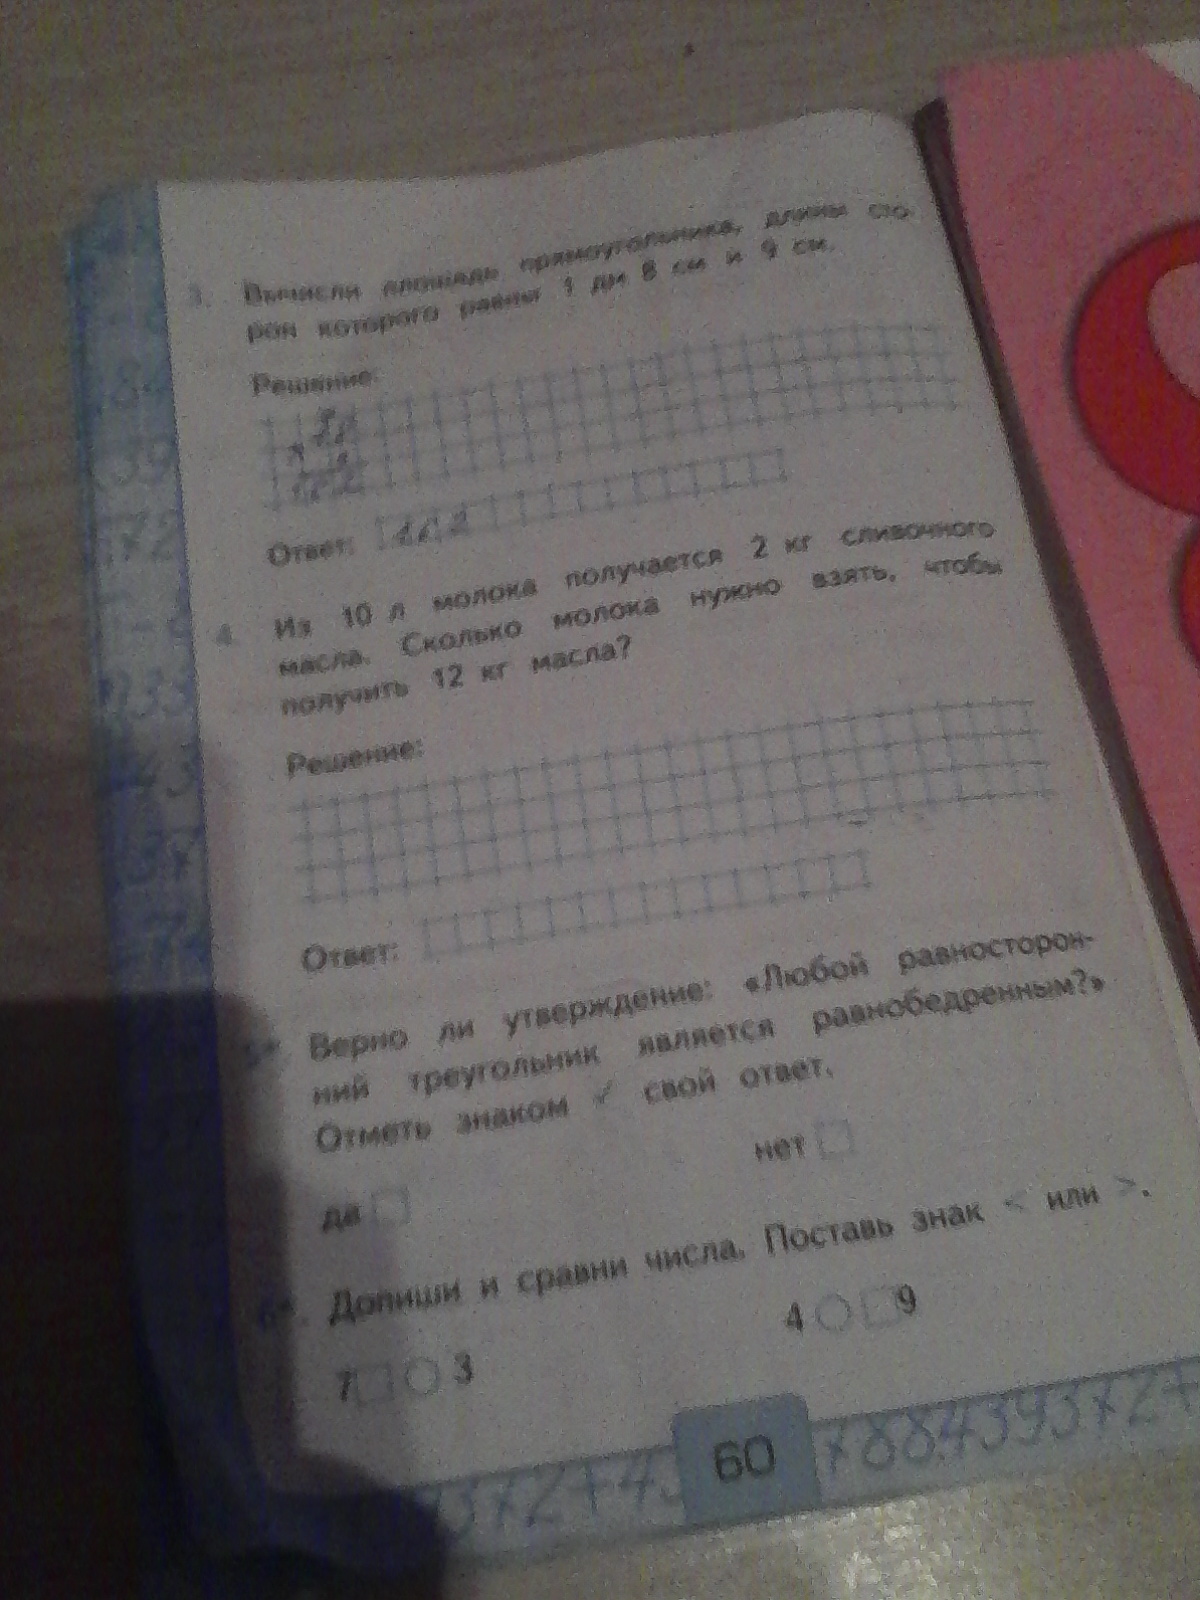 3. Вычисли площадь прямоугольника, длины сто-
рон которого равны 1 дм 8 см и 9 см.
Решение:
Ответ:
4. Из 10 л молока получается 2 кг сливочного
масла. Сколько молока нужно взять, чтобы
получить 12 кг масла?
Решение:
Ответ:
Верно ли утверждение: «Любой равносторон-
ний треугольник является равнобедренным?»
Отметь знаком ✓ свой ответ.
да □ нет □
Допиши и сравни числа. Поставь знак < или >.
7□ ○ 3 4 ○ □9
60